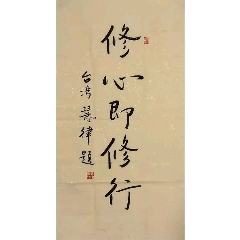 修心即修行
台湾慧律題